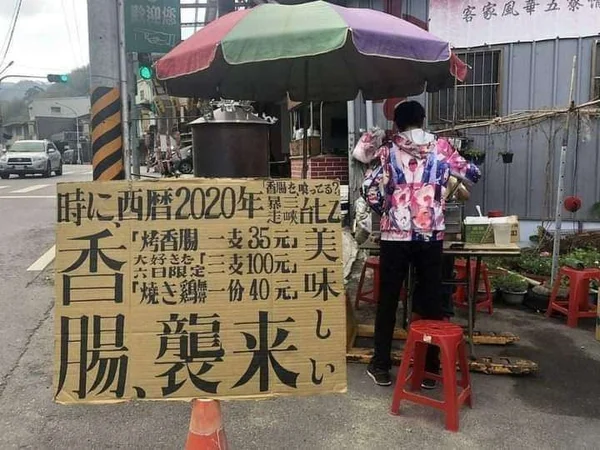 歡迎您
客家風華五寮情
時に、西暦2020年
「香腸を喰ってる?
暴走
三峽
香腸、襲来
「烤香腸 一支35元」
大好きた
六日限定
三支100元」
「焼き鶏 一份40元」
美味しい